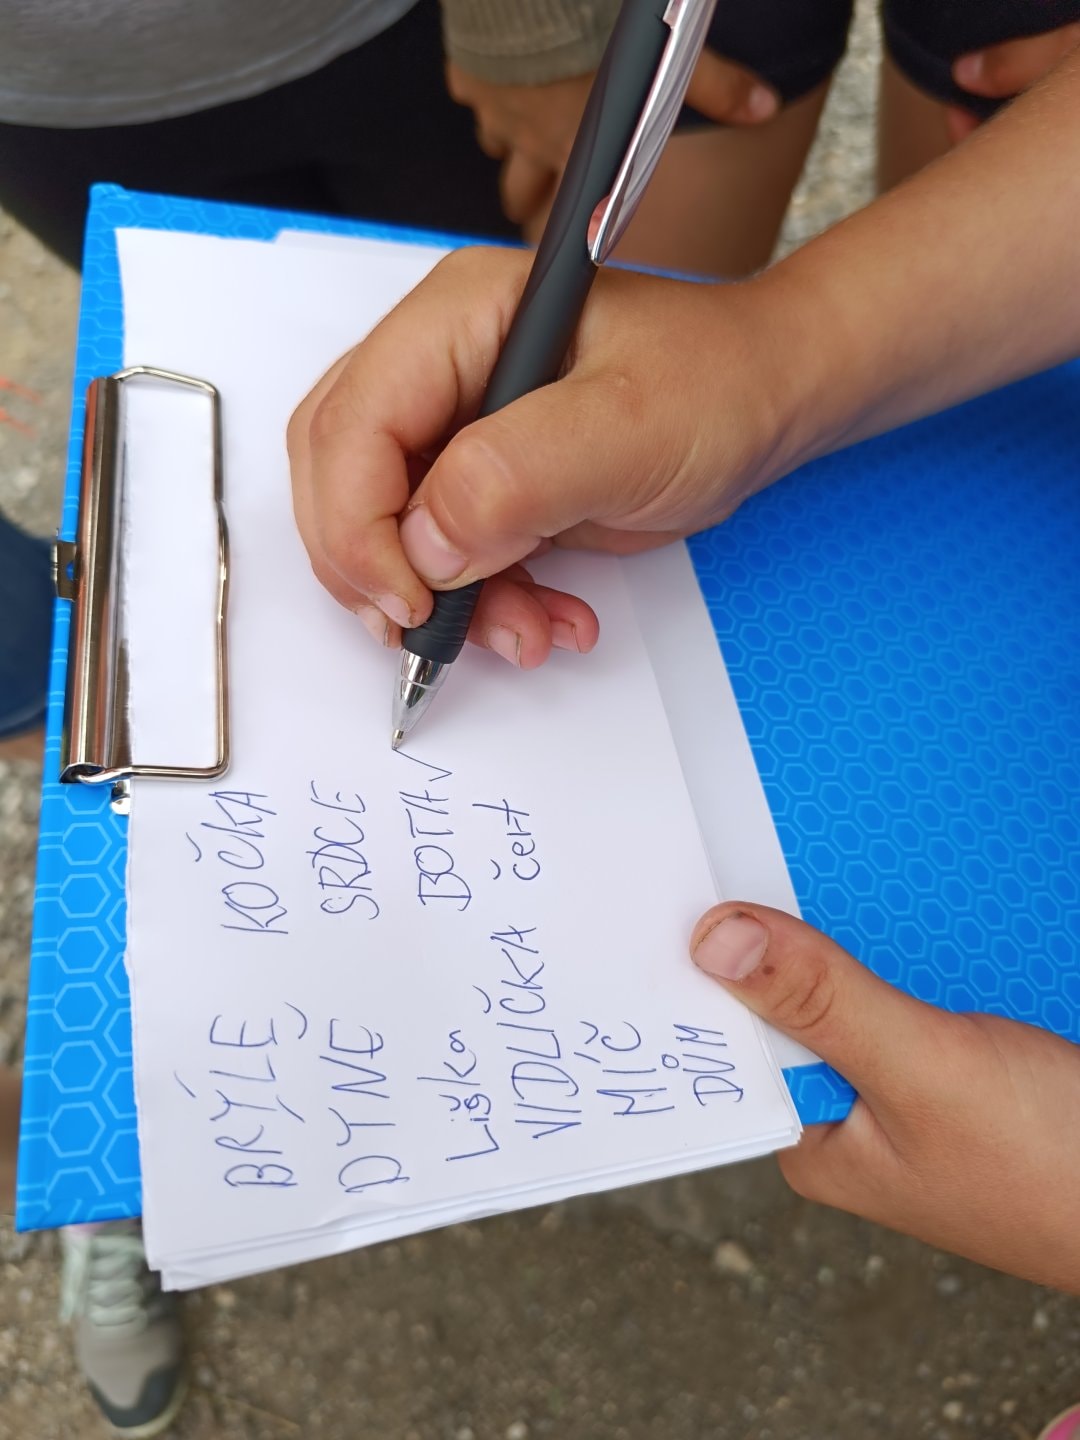 BRÝLE KOČKA
DÝNĚ SRDCE
Liška BOTA
VIDLIČKA čert
MÍČ
DŮM